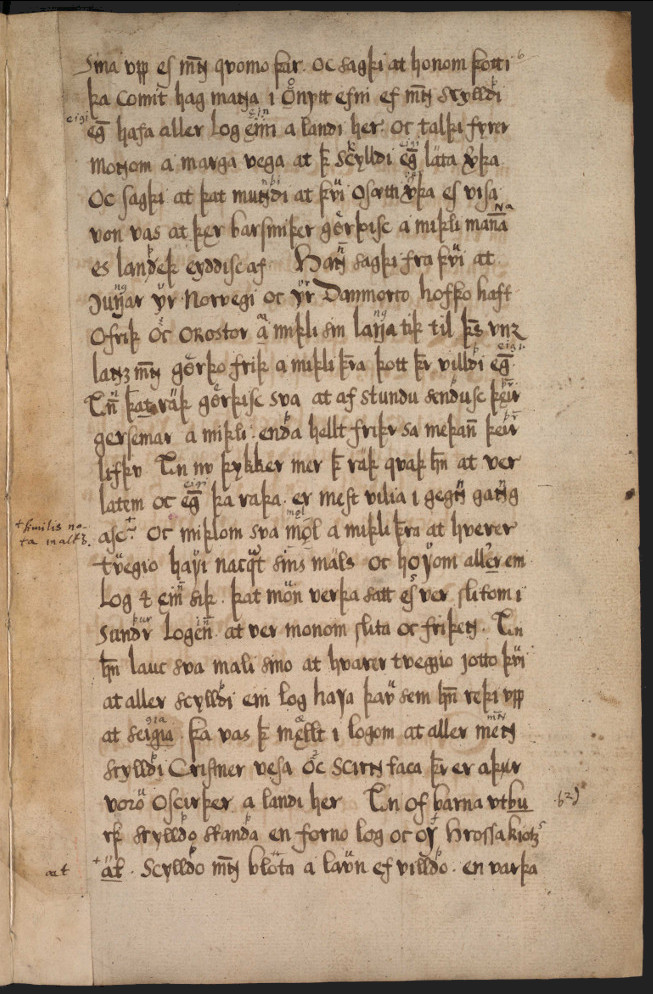 sina vpp es m̄ qvomo þar. oc sagþi at honom þótti
þa comit hag manna i ónytt efni ef m̄ scylldi
eḡ hafa aller log ein a landi her. oc talþi fyrer
monnom a marga vega at þ scylldi eḡ láta verþa
Oc sagþi at þat mundi at þvi ósætti verþa es visa
von vas at þer barsmiþer gørþisc a mikli maña
es landeþ eyddisc af Hann sagþi fra þvi at
Junngar ýr Norvegi oc ýr Danmorco hofþo haft
Ofriþ oc orostor a mikli sin a milli tiþ til þess unz
lannz m̄ gørþo friþ a mikli þra þott þr villdi eḡ.
En̄ þat ráþ gørþisc sva at af stundu sendusc þeir
gersemar a mikli. enda hellt friþr sa meþan̄ þeir
lifþo En nv þykker mer þ ráþ qvaþ hn̄ at ver
latem oc eḡ þa raþa. er mest vilia i gegn gang
asc. oc miþlom sva mǫl a mikli þra at hverer
tveggio hafi nacqvat sins máls oc hofom aller ein
log & ein siþ. þat mon verþa satt es ver slitom i
sundr logen at ver monom slita oc friþen. En
hn̄ lauc sva mali sino at hvarer tveggio jótto þvi
at aller scylldi ein log hafa þau sem hn̄ reþi vpp
at seigia þa vas þ mællt i logom at aller menn
scylldi Cristner vesa oc scirn taca þr er aþur
voro oscirþer a landi her En of barna vtbu
rþ scylldo standa en forno log oc of hrossakiotz
át. Scylldo m̄ blóta a laun ef villdo. en varþa
+ similis no-
ta in alt.
aat